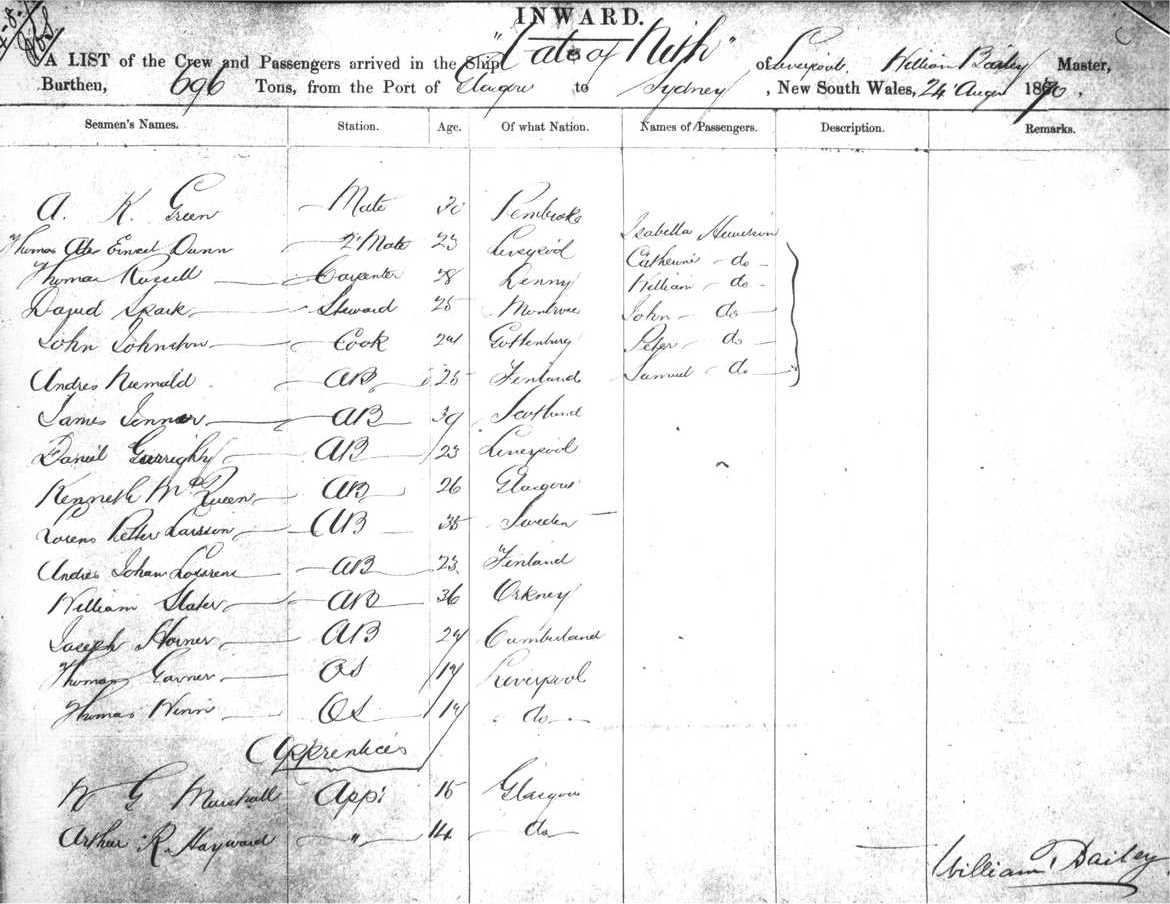 INWARD.
A LIST of the Crew and Passengers arrived in the Ship "Cate of Nith" of Liverpool, William Bailey Master,
Burthen, 696 Tons, from the Port of Glasgow to Sydney, New South Wales, 24 Augt 1870,
Seamen's Names. Station. Age. Of what Nation. Names of Passengers. Description. Remarks.
A. K. Green Mate 30 Pembroke
Isabella
Thomas Ernest Dunn 2d Mate 23 Liverpool
Catherine do
Thomas Russell Carpenter 28 Denny
William do
David Spark Steward 25 Montrose
John do
John Johnston Cook 24 Gottenburg
Peter do
Andres AB 25 Finland
Samuel do
James Jenner AB 39 Scotland
Daniel AB 23 Liverpool
Kenneth McQueen AB 26 Glasgow
Lorens Petter Larsson AB 35 Sweden
Andres Johan AB 23 Finland
William Slater AB 36 Orkney
Joseph Horner AB 24 Cumberland
Thomas Garner OS 19 Liverpool
Thomas Winn OS 19 do
Apprentices
W G Marshall App 15 Glasgow
Arthur R. Hayward " 14 do
William Bailey